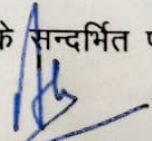 के सन्दर्भित